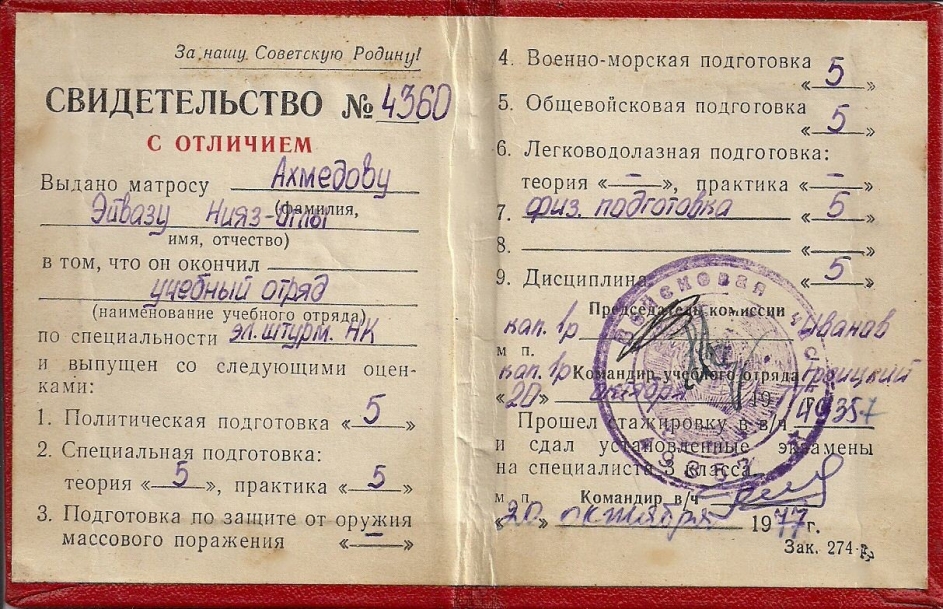 За нашу Советскую Родину!
СВИДЕТЕЛЬСТВО № 4360
С ОТЛИЧИЕМ
Выдано матросу Ахмедову
(фамилия,
Эйвазу Нияз-Оглы
имя, отчество)
в том, что он окончил
учебный отряд
(наименование учебного отряда)
по специальности эл. штурм. НК
и выпущен со следующими оцен-
ками:
1. Политическая подготовка « 5 »
2. Специальная подготовка:
теория « 5 », практика « 5 »
3. Подготовка по защите от оружия
массового поражения « – »
4. Военно-морская подготовка
« 5 »
5. Общевойсковая подготовка
« 5 »
6. Легководолазная подготовка:
теория « – », практика « – »
7. физ. подготовка « 5 »
8.
9. Дисциплина « 5 »
Председатель комиссии
кап. 1р Иванов
м п.
Командир учебного отряда
кап. 1р Троицкий
«20» октября 19 г.
Прошел стажировку в в/ч 49357
и сдал установленные экзамены
на специалиста 3 класса
м п. Командир в/ч
«20» октября 1977 г.
Зак. 274
Войсковая